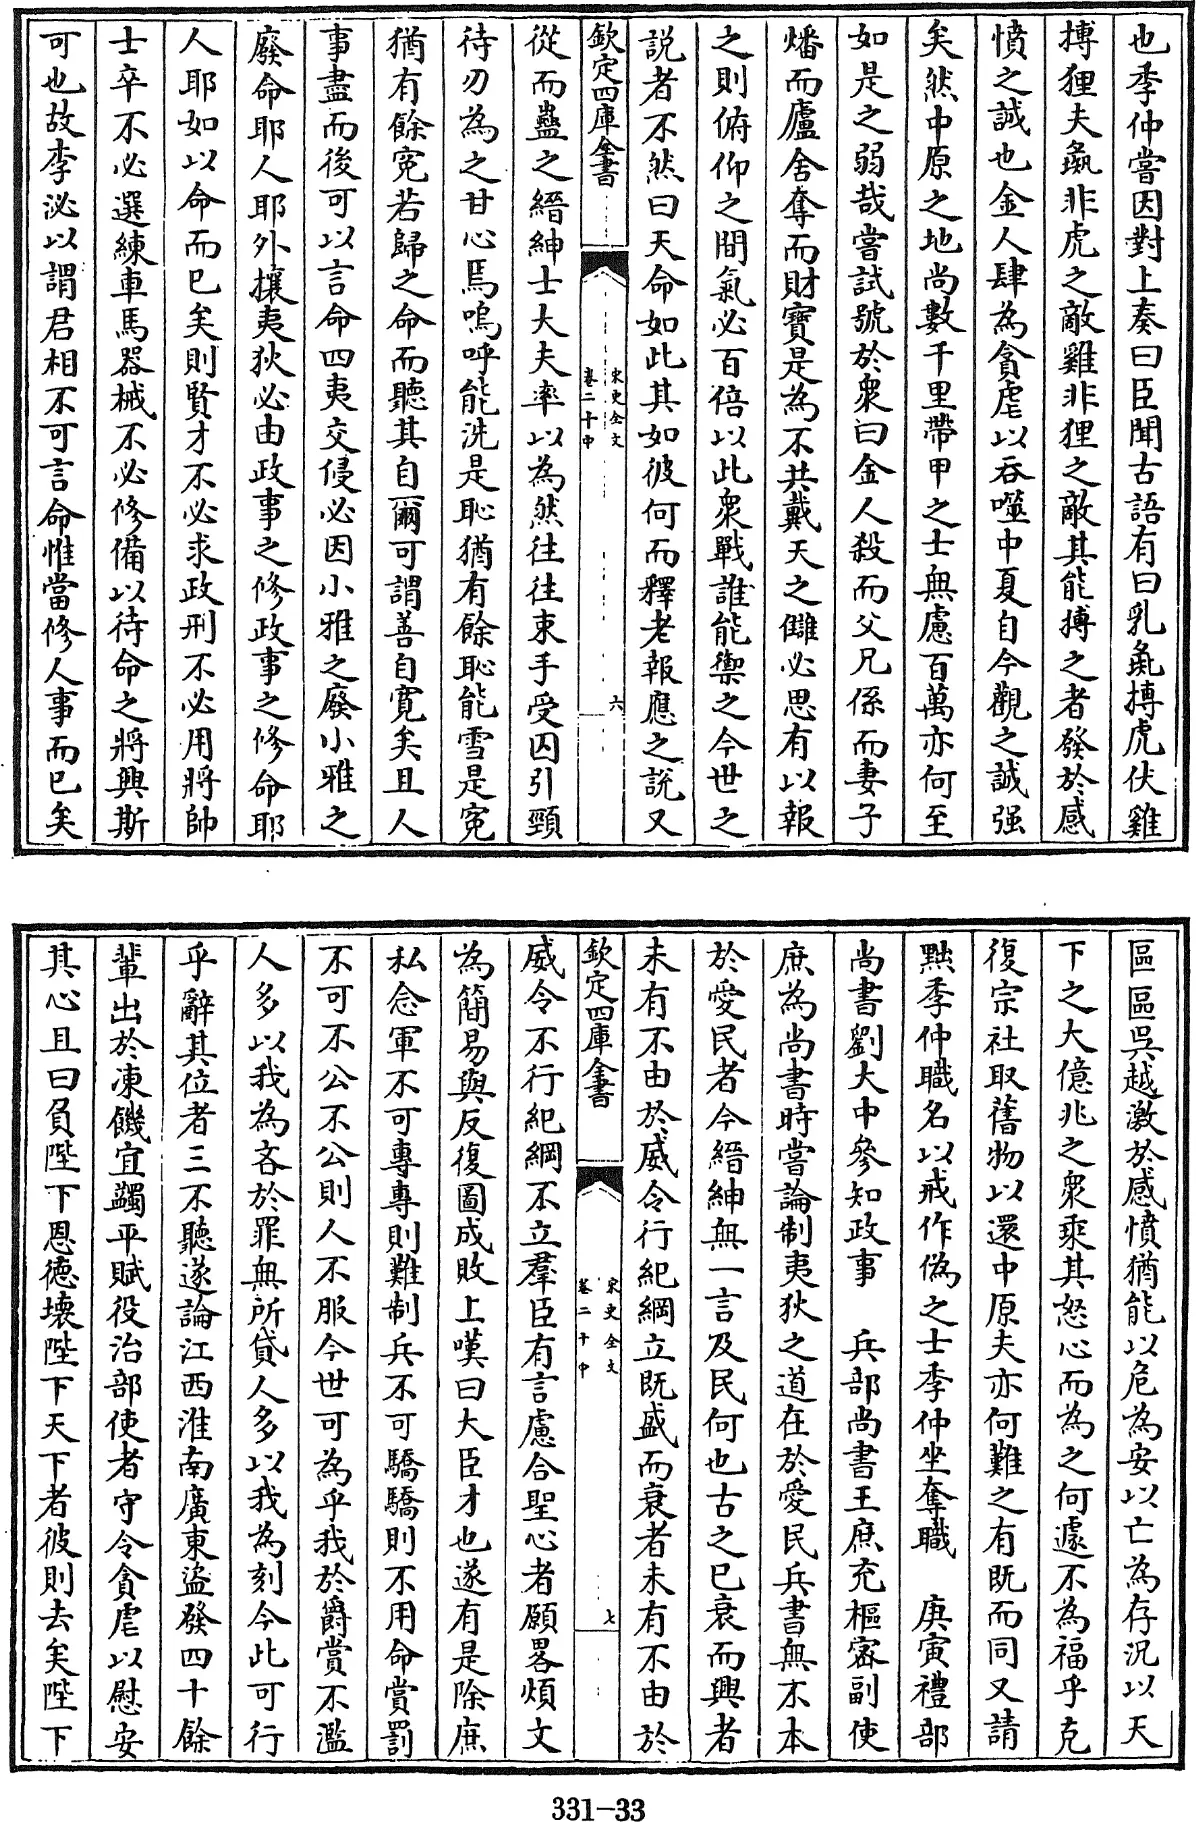 也季仲嘗因對上奏曰臣聞古語有曰乳彘搏虎伏雞
搏狸夫彘非虎之敵雞非狸之敵其能搏之者發於感
憤之誠也金人肆為貪虐以吞噬中夏自今觀之誠强
矣然中原之地尚數千里帶甲之士無慮百萬亦何至
如是之弱哉嘗試號於衆曰金人殺而父兄係而妻子
燔而廬舍奪而財寶是為不共戴天之讎必思有以報
之則俯仰之間氣必百倍以此衆戰誰能禦之今世之
説者不然曰天命如此其如彼何而釋老報應之説又
欽定四庫全書
宋史全文
卷二十中
六
從而蠱之縉紳士大夫率以為然往往束手受囚引頸
待刃為之甘心焉嗚呼能洗是恥猶有餘恥能雪是寃
猶有餘寃若歸之命而聽其自爾可謂善自寬矣且人
事盡而後可以言命四夷交侵必因小雅之廢小雅之
廢命耶人耶外攘夷狄必由政事之修政事之修命耶
人耶如以命而已矣則賢才不必求政刑不必用將帥
士卒不必選練車馬器械不必修備以待命之將興斯
可也故李泌以謂君相不可言命惟當修人事而已矣
區區吳越激於感憤猶能以危為安以亡為存況以天
下之大億兆之衆乘其怒心而為之何遽不為福乎克
復宗社取舊物以還中原夫亦何難之有既而同又請
黜季仲職名以戒作偽之士季仲坐奪職 庚寅禮部
尚書劉大中參知政事 兵部尚書王庶充樞密副使
庶為尚書時嘗論制夷狄之道在於愛民兵書無不本
於愛民者今縉紳無一言及民何也古之已衰而興者
未有不由於威令行紀綱立既盛而衰者未有不由於
欽定四庫全書
宋史全文
卷二十中
七
威令不行紀綱不立羣臣有言慮合聖心者願畧煩文
為簡易與反復圖成敗上嘆曰大臣才也遂有是除庶
私念軍不可專專則難制兵不可驕驕則不用命賞罰
不可不公不公則人不服今世可為乎我於爵賞不濫
人多以我為吝於罪無所貸人多以我為刻今此可行
乎辭其位者三不聽遂論江西淮南廣東盜發四十餘
輩出於凍饑宜蠲平賦役治部使者守令貪虐以慰安
其心且曰負陛下恩德壞陛下天下者彼則去矣陛下
331-33